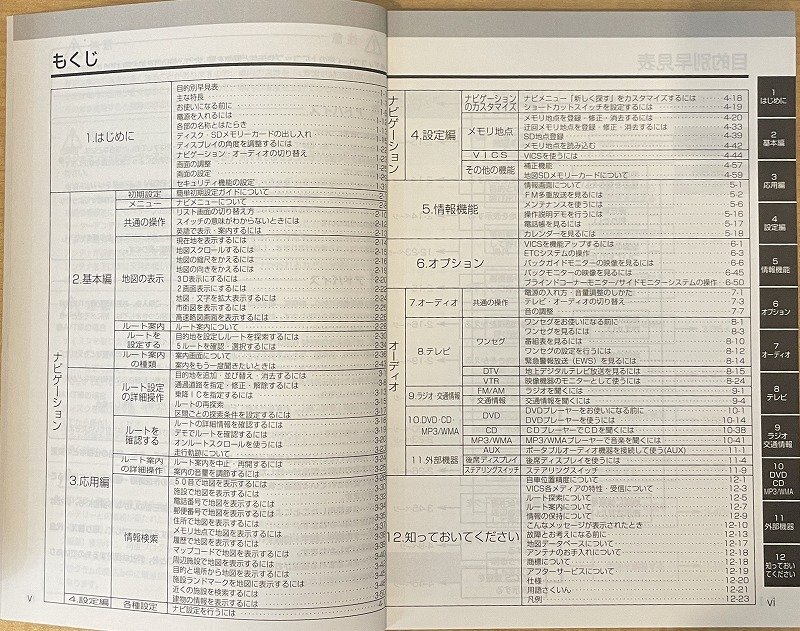 もくじ
1.はじめに
目的別早見表
主な特長
お使いになる前に
電源を入れるには
各部の名称とはたらき
ディスク・SDメモリーカードの出し入れ
ディスプレイの角度を調整するには
ナビゲーション・オーディオの切り替え
画面の調整
画面の設定
セキュリティ機能の設定
ナビゲーション
2.基本編
初期設定
簡単初期設定ガイドについて
メニュー
ナビメニューについて
共通の操作
リスト画面の切り替え方
スイッチの意味がわからないときには
英語で表示・案内するには
地図の表示
現在地を表示するには
地図スクロールするには
地図の縮尺をかえるには
地図の向きをかえるには
3D表示にするには
2画面表示にするには
地図・文字を拡大表示するには
市街図を表示するには
高速路図画面を表示するには
ルート案内
ルート案内について
ルートを設定する
目的地を設定しルートを探索するには
5ルートを確認・選択するには
ルート案内の種類
案内画面について
案内をもう一度聞きたいときは
3.応用編
ルート設定の詳細操作
目的地を追加・並び替え・消去するには
通過道路を指定・修正・解除するには
乗降ICを指定するには
ルートの再探索
区間ごとの探索条件を設定するには
ルートを確認する
ルートの詳細情報を確認するには
デモでルートを確認するには
オンルートスクロールを使うには
走行軌跡について
ルート案内の詳細操作
ルート案内を中止・再開するには
案内の音量を調節するには
情報検索
50音で地図を表示するには
施設で地図を表示するには
電話番号で地図を表示するには
郵便番号で地図を表示するには
住所で地図を表示するには
メモリ地点で地図を表示するには
履歴で地図を表示するには
マップコードで地図を表示するには
周辺施設で地図を表示するには
目的と場所から地図を表示するには
施設ランドマークを地図に表示するには
近くの施設を検索するには
建物の情報を表示するには
4.設定編
各種設定
ナビ設定を行うには
v
ナビゲーション
4.設定編
ナビゲーションのカスタマイズ
ナビメニュー「新しく探す」をカスタマイズするには 4-18
ショートカットスイッチを設定するには 4-19
メモリ地点
メモリ地点を登録・修正・消去するには 4-20
迂回メモリ地点を登録・修正・消去するには 4-33
SD地点登録 4-39
メモリ地点を読み込む 4-42
VICS
VICSを使うには 4-44
その他の機能
補正機能 4-57
地図SDメモリーカードについて 4-59
5.情報機能
情報画面について 5-1
FM多重放送を見るには 5-2
メンテナンスを使うには 5-6
操作説明デモを行うには 5-16
電話帳を見るには 5-17
カレンダーを見るには 5-18
6.オプション
VICSを機能アップするには 6-1
ETCシステムの操作 6-3
バックガイドモニターの映像を見るには 6-6
バックモニターの映像を見るには 6-45
ブラインドコーナーモニター/サイドモニターシステムの操作 6-50
オーディオ
7.オーディオ
共通の操作
電源の入れ方・音量調整のしかた 7-1
テレビ・オーディオの切り替え 7-3
音の調整 7-7
8.テレビ
ワンセグ
ワンセグをお使いになる前に 8-1
ワンセグを見るには 8-3
番組表を見るには 8-10
ワンセグの設定を行うには 8-12
緊急警報放送(EWS)を見るには 8-14
DTV
地上デジタルテレビ放送を見るには 8-15
VTR
映像機器のモニターとして使うには 8-24
9.ラジオ・交通情報
FM/AM
ラジオを聞くには 9-1
交通情報
交通情報を聞くには 9-4
10.DVD・CD MP3/WMA
DVD
DVDプレーヤーをお使いになる前に 10-1
DVDプレーヤーを使うには 10-14
CD
CDプレーヤーでCDを聞くには 10-38
MP3/WMA
MP3/WMAプレーヤーで音楽を聞くには 10-41
11.外部機器
AUX
ポータブルオーディオ機器を接続して使う(AUX) 11-1
後席ディスプレイ
後席ディスプレイを使うには 11-4
ステアリングスイッチ
ステアリングスイッチ 11-9
12.知っておいてください
自車位置精度について 12-1
VICS各メディアの特性・受信について 12-3
ルート探索について 12-5
ルート案内について 12-7
情報の保持について 12-9
こんなメッセージが表示されたとき 12-10
故障とお考えになる前に 12-13
地図データベースについて 12-17
アンテナのお手入れについて 12-18
商標について 12-18
アフターサービスについて 12-19
仕様 12-20
用語さくいん 12-21
凡例 12-23
1
はじめに
2
基本編
3
応用編
4
設定編
5
情報機能
6
オプション
7
オーディオ
8
テレビ
9
ラジオ
交通情報
10
DVD
CD
MP3/WMA
11
外部機器
12
知っておいてください
vi